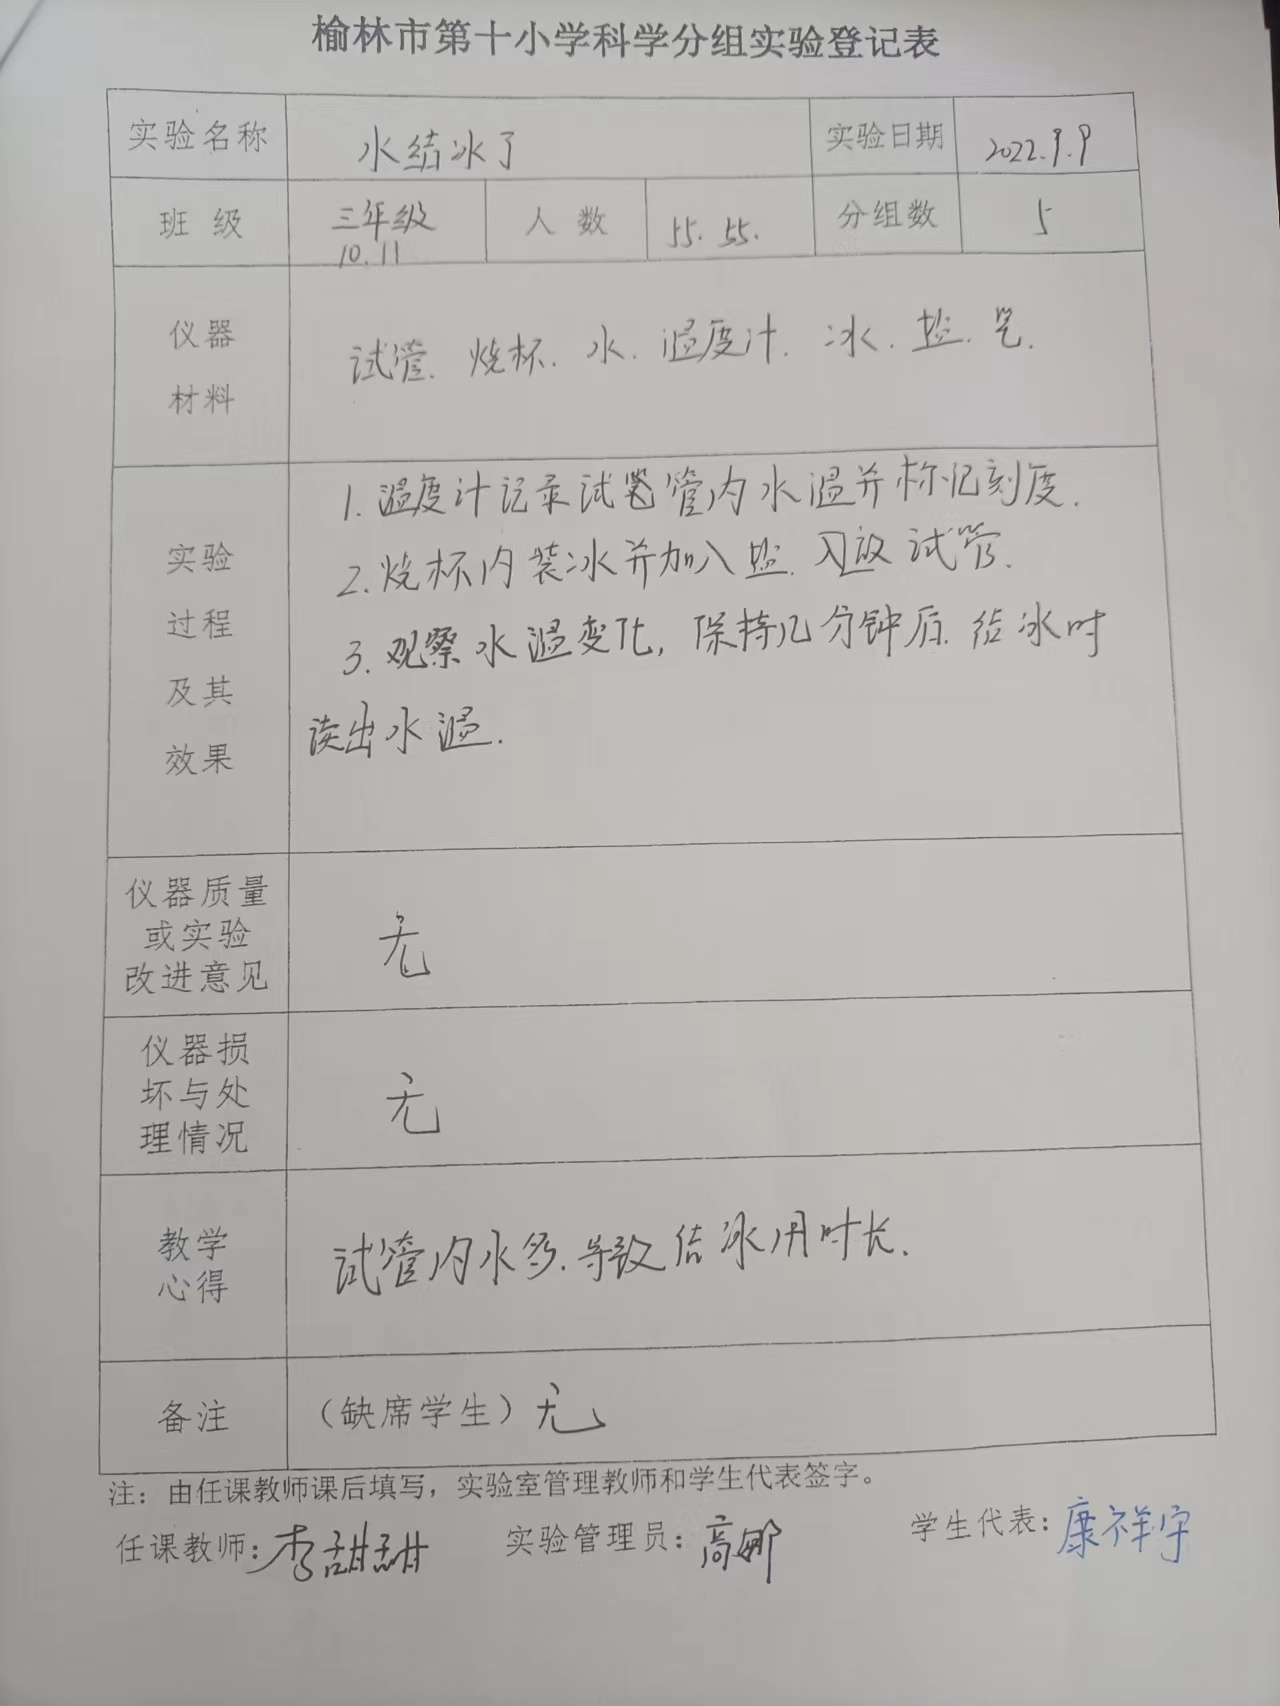 榆林市第十小学科学分组实验登记表
实验名称 水结冰了 实验日期 2022.9.9
班 级 三年级 10.11 人 数 55. 55. 分组数 5
仪器
材料
试管. 烧杯. 水. 温度计. 冰. 盐.
实验
过程
及其
效果
1. 温度计记录试管内水温并标记刻度.
2. 烧杯内装冰并加入盐. 放试管.
3. 观察水温变化, 保持几分钟后. 结冰时
读出水温.
仪器质量
或实验
改进意见
无
仪器损
坏与处
理情况
无
教学
心得
试管内水多. 导致结冰用时长.
备注 （缺席学生）无
注：由任课教师课后填写，实验室管理教师和学生代表签字。
任课教师: 李甜甜 实验管理员: 高娜 学生代表: 康祥宇